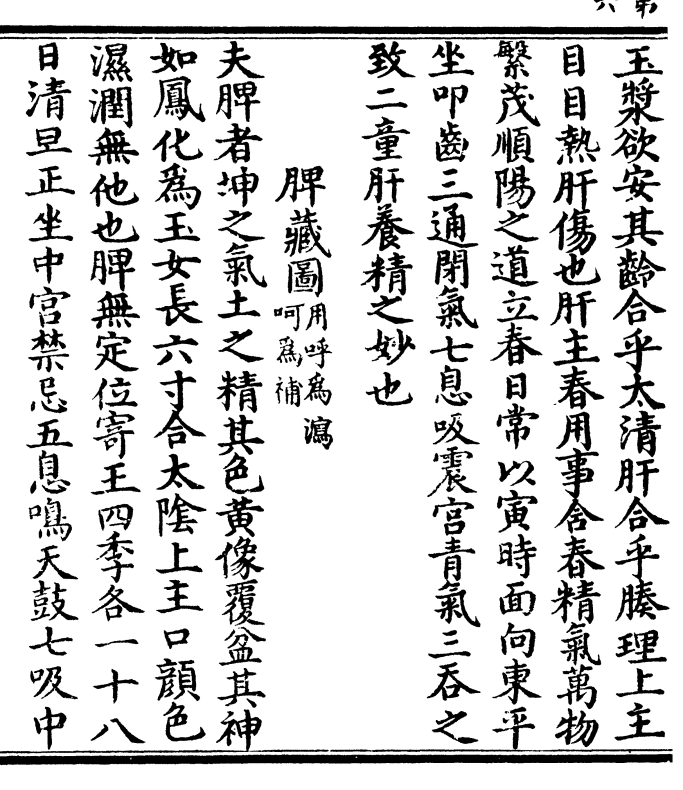 玉漿欲安其齡合乎太清肝合乎腠理上主
目目熱肝傷也肝主春用事含春精氣萬物
繁茂順陽之道立春日常以寅時面向東平
坐叩齒三通閉氣七息吸震宮青氣三吞之
致二童肝養精之妙也
脾藏圖用呼為瀉
呵爲補
夫脾者坤之氣土之精其色黃像覆盆其神
如鳳化爲玉女長六寸合太陰上主口顏色
濕潤無他也脾無定位寄王四季各一十八
日清旦正坐中宮禁忌五息鳴天鼓七吸中